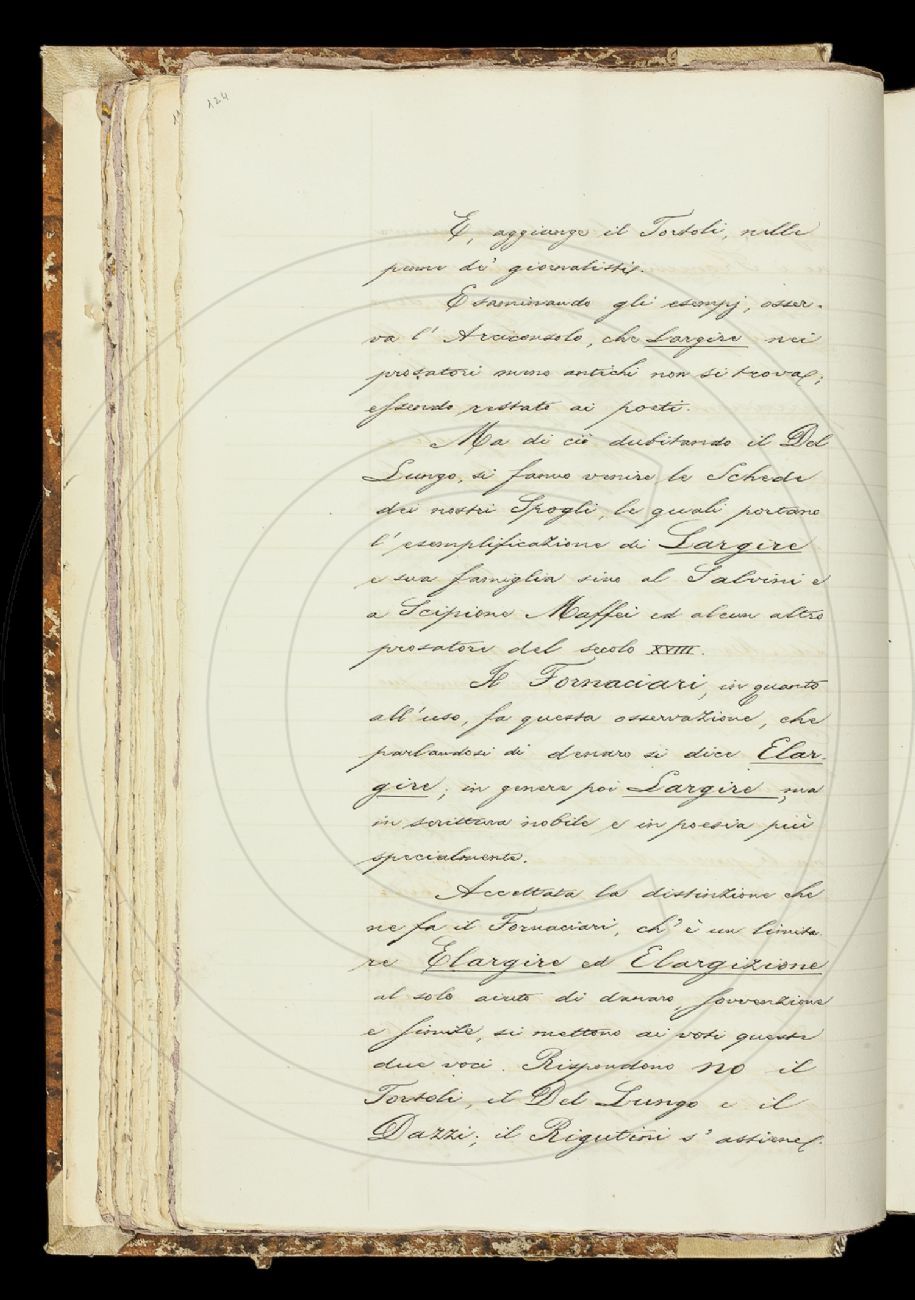 124
E, aggiunge il Tortoli, nelle
penne de' giornalisti.
Esaminando gli esempj, osser-
va l' Arciconsolo, che Largire nei
prosatori meno antichi non si trova;
essendo restato ai poeti.
Ma di ciò dubitando il Del
Lungo, si fanno venire le Schede
dei nostri Spogli, le quali portano
l' esemplificazione di Largire
e sua famiglia sino al Salvini e
a Scipione Maffei ed alcun altro
prosatore del secolo XVIII.
Il Fornaciari, in quanto
all' uso, fa questa osservazione, che
parlandosi di denaro si dice Elar-
gire; in genere poi Largire, ma
in scrittura nobile e in poesia più
specialmente.
Accettata la distinzione che
ne fa il Fornaciari, ch' è un limita
re Elargire ed Elargizione
al solo aiuto di danaro, sovvenzione
e simile, si mettono ai voti queste
due voci. Rispondono no il
Tortoli, il Del Lungo e il
Dazzi; il Rigutini s' astiene.